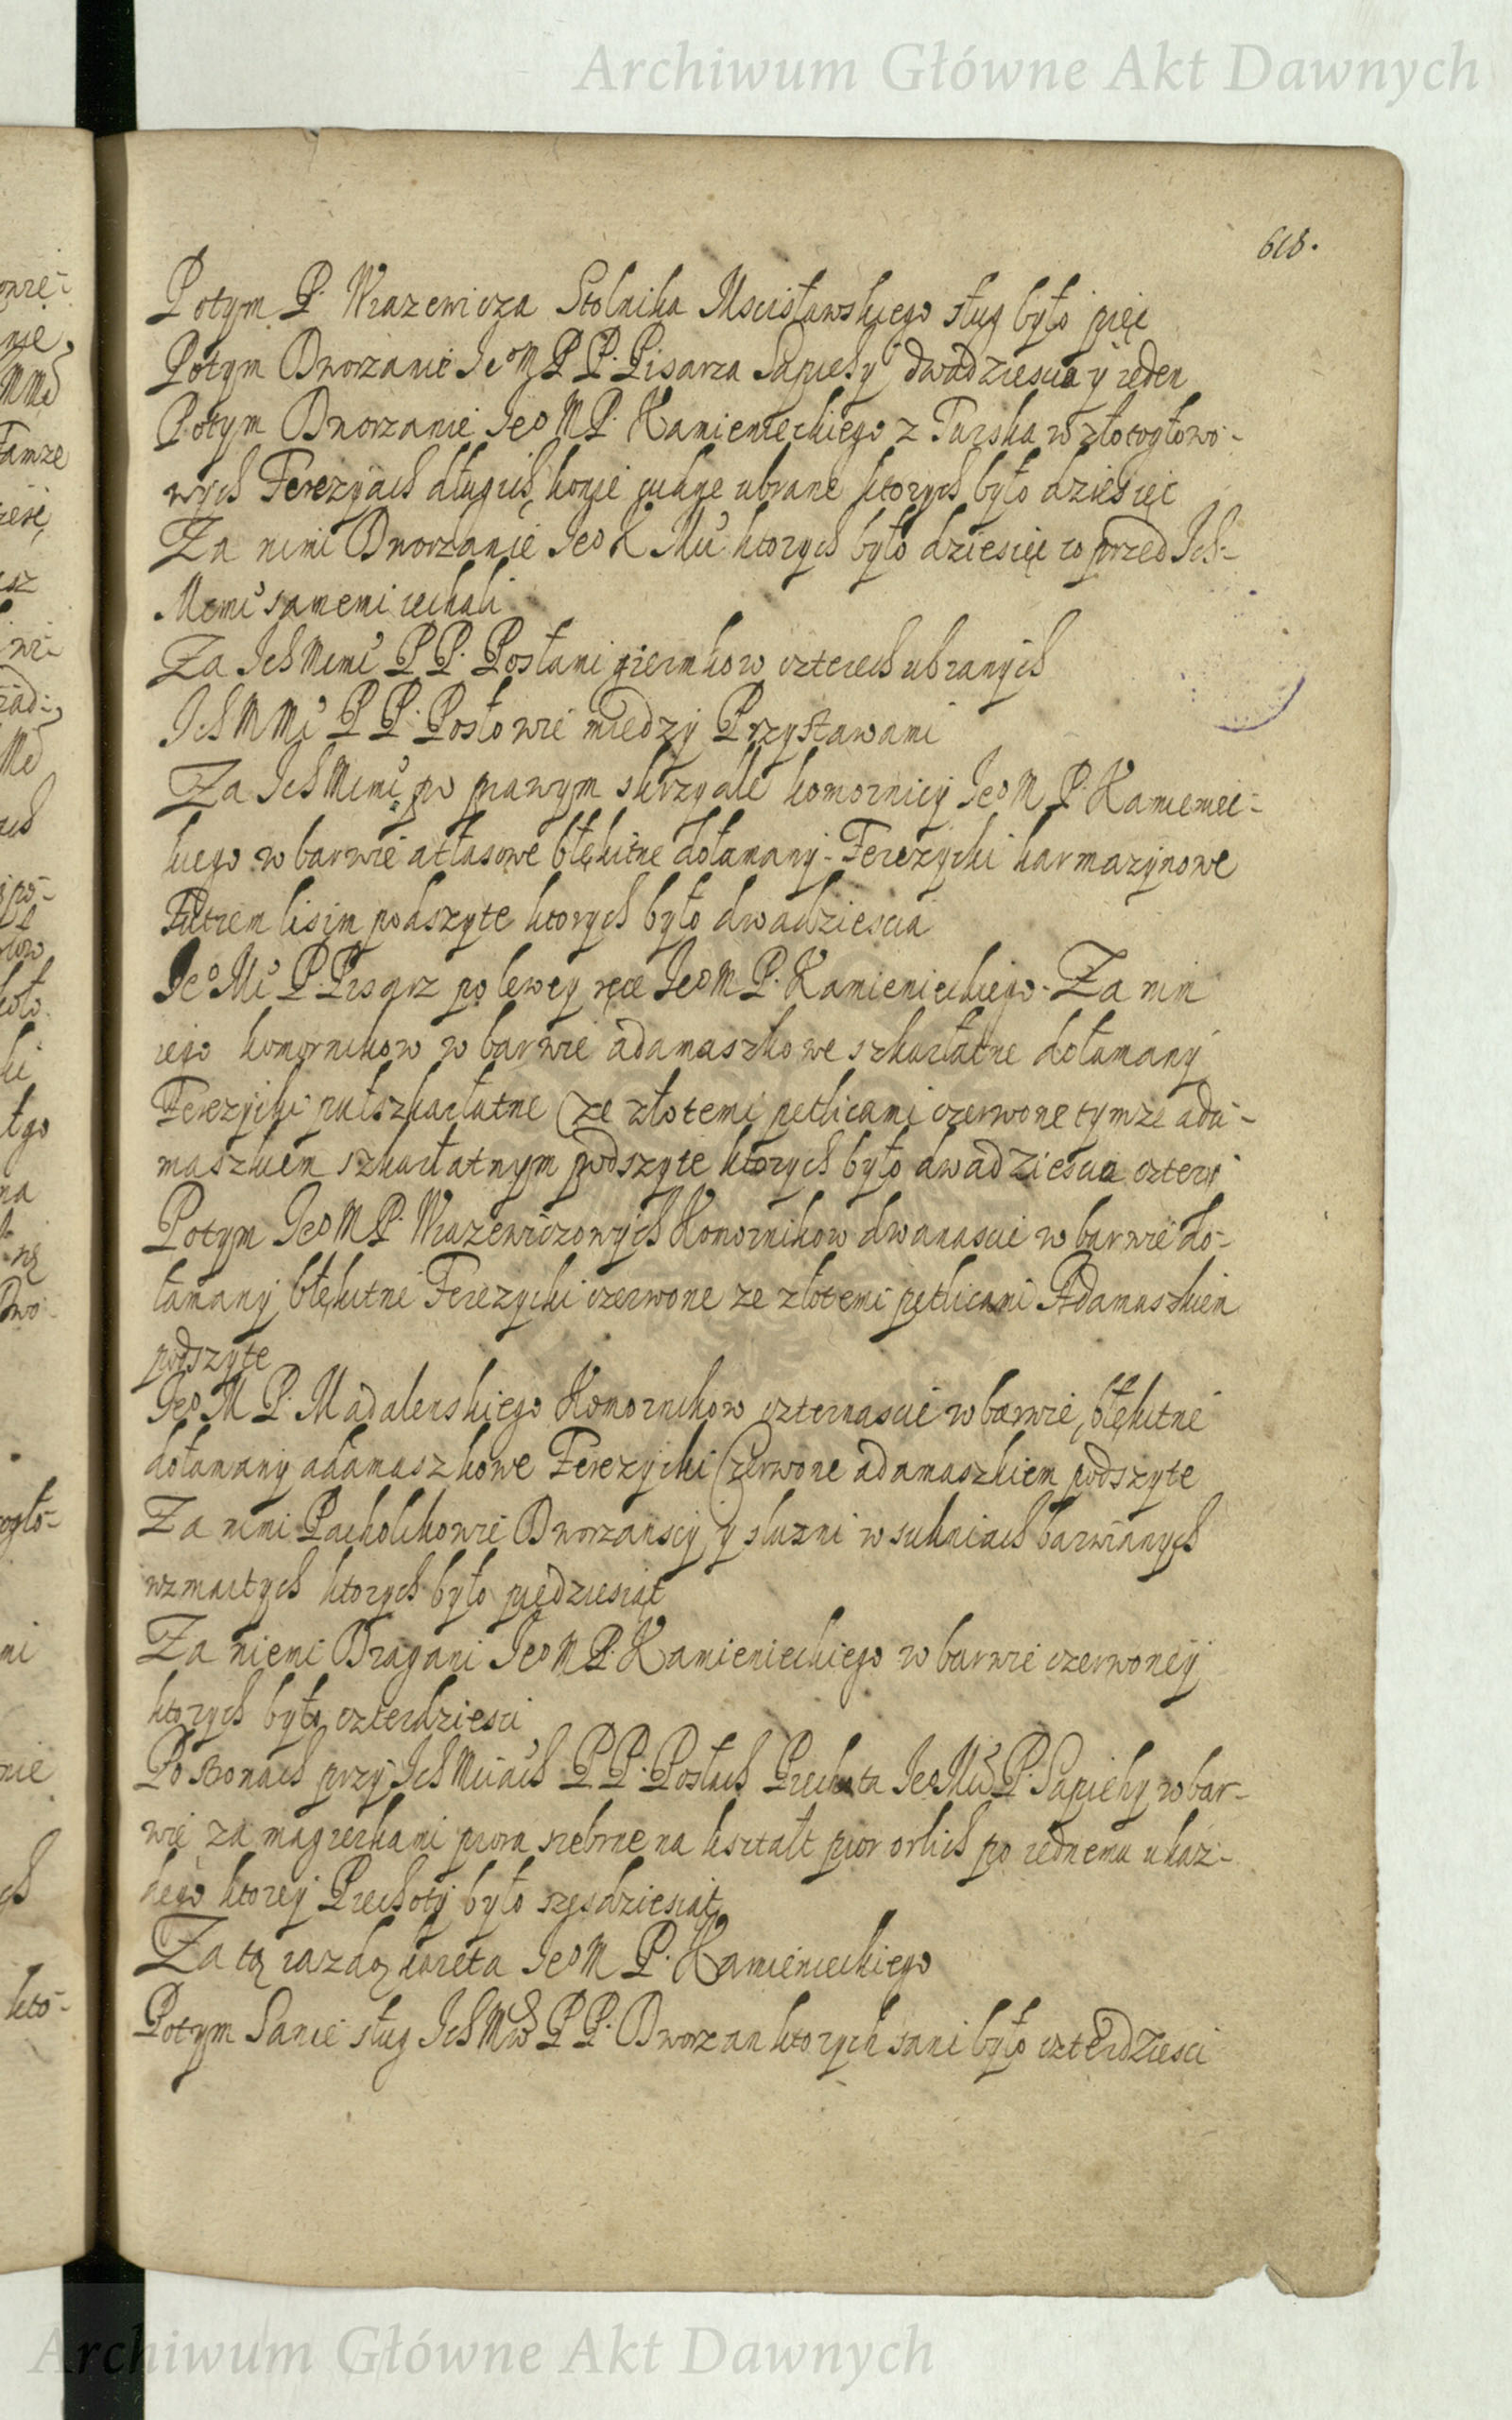 Archiwum Główne Akt Dawnych
618.
Potym P. Wiazewicza Stolnika Mscisławskiego sług było pięc
Potym Dworzanie Jeo M P P. Pisarza Sapiehy dwadziescia y ieden
Potym Dworzanie Jeo M P. Kamienieckiego z Turska w złotogłowo-
wych Ferezyach długich, konie cudne ubrane ktorych było dziesięc
Za nimi Dworzanie Jeo K Mci ktorych było dziesięc co przed Ich-
Mcmi samemi iechali
Za Ich Mcmi P P. Posłami giermkow czterech ubranych
Ich M Mc P P. Posłowie miedzy Przystawami
Za Ich Mcmi po prawym skrzydle komornicy Jeo M P. Kamieniec-
kiego w barwie atłasowe błękitne dołamany - Ferezycki karmazynowe
Futrem lisim podszyte ktorych było dwadziescia
Jeo Mc P. Pisarz po lewey ręce Jeo M P. Kamienieckiego. Za nim
iego komornikow w barwie adamaszkowe szkarłatne dołamany
Ferezycki pułszkarłatne ze złotemi petlicami czerwone tymze ada-
maszkiem szkarłatnym podszyte ktorych było dwadziescia cztery
Potym Jeo M P. Wiazewiczowych Komornikow dwanascie w barwie do-
łamany błękitne Ferezycki czerwone ze złotemi petlicami Adamaszkiem
podszyte
Jeo M P. Madalenskiego Komornikow czternascie w barwie, błękitne
dołamany adamaszkowe Ferezycki Czerwone adamaszkiem podszyte
Za nimi Pacholikowie Dworzanscy y słuzni w sukniach barwianych
wzmaitych ktorych było pięcdziesiąt
Za niemi Dragani Jeo M P. Kamienieckiego w barwie czerwoney
ktorych było czterdziesci
Po stronach przy Ich Mciach P P. Posłach Piechota Jeo Mci P. Sapiehy w bar-
wie za magierkami piora srebrne na kształt pior orlich po iednemu u kaz-
dego ktorey Piechoty było szescdziesiąt
Za tą iazdą kareta Jeo M P. Kamienieckiego
Potym Sanie sług Ich Mciow P P. Dworzan ktorych sani było czterdziesci
Archiwum Główne Akt Dawnych